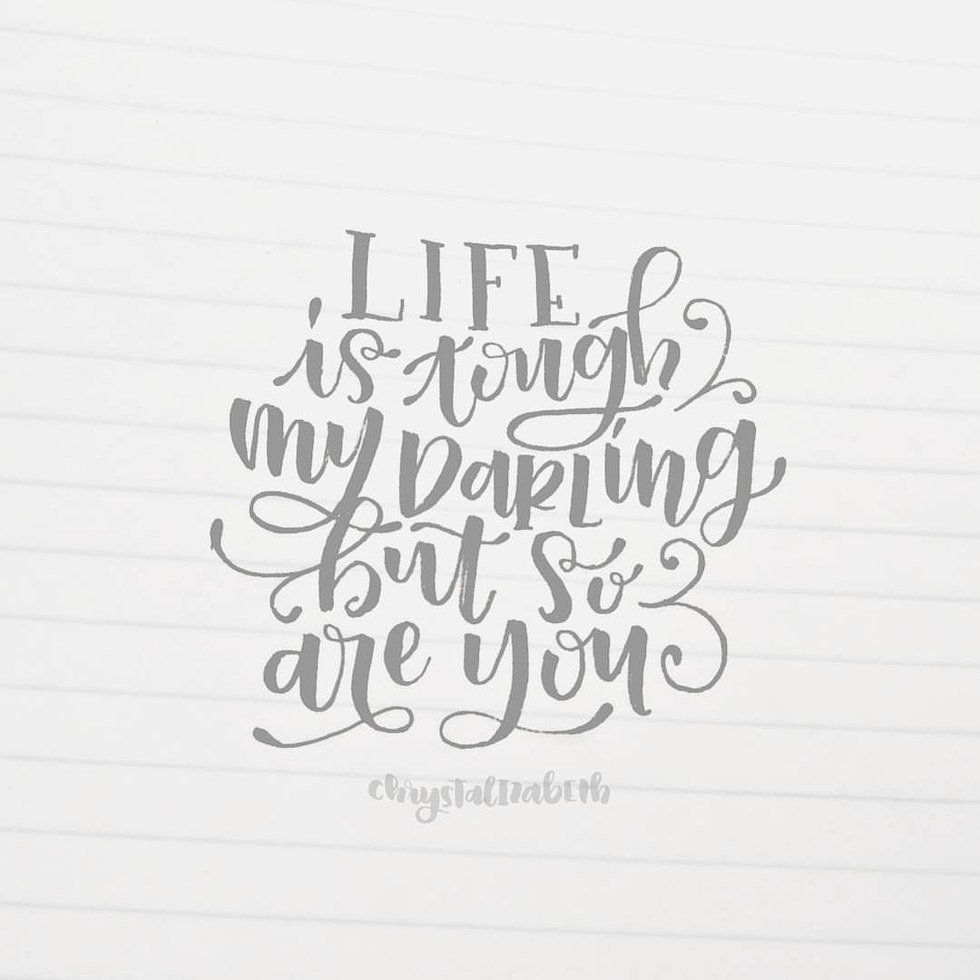 LIFE
is tough
my DaRLing
but so
are you
chrystalizabeth